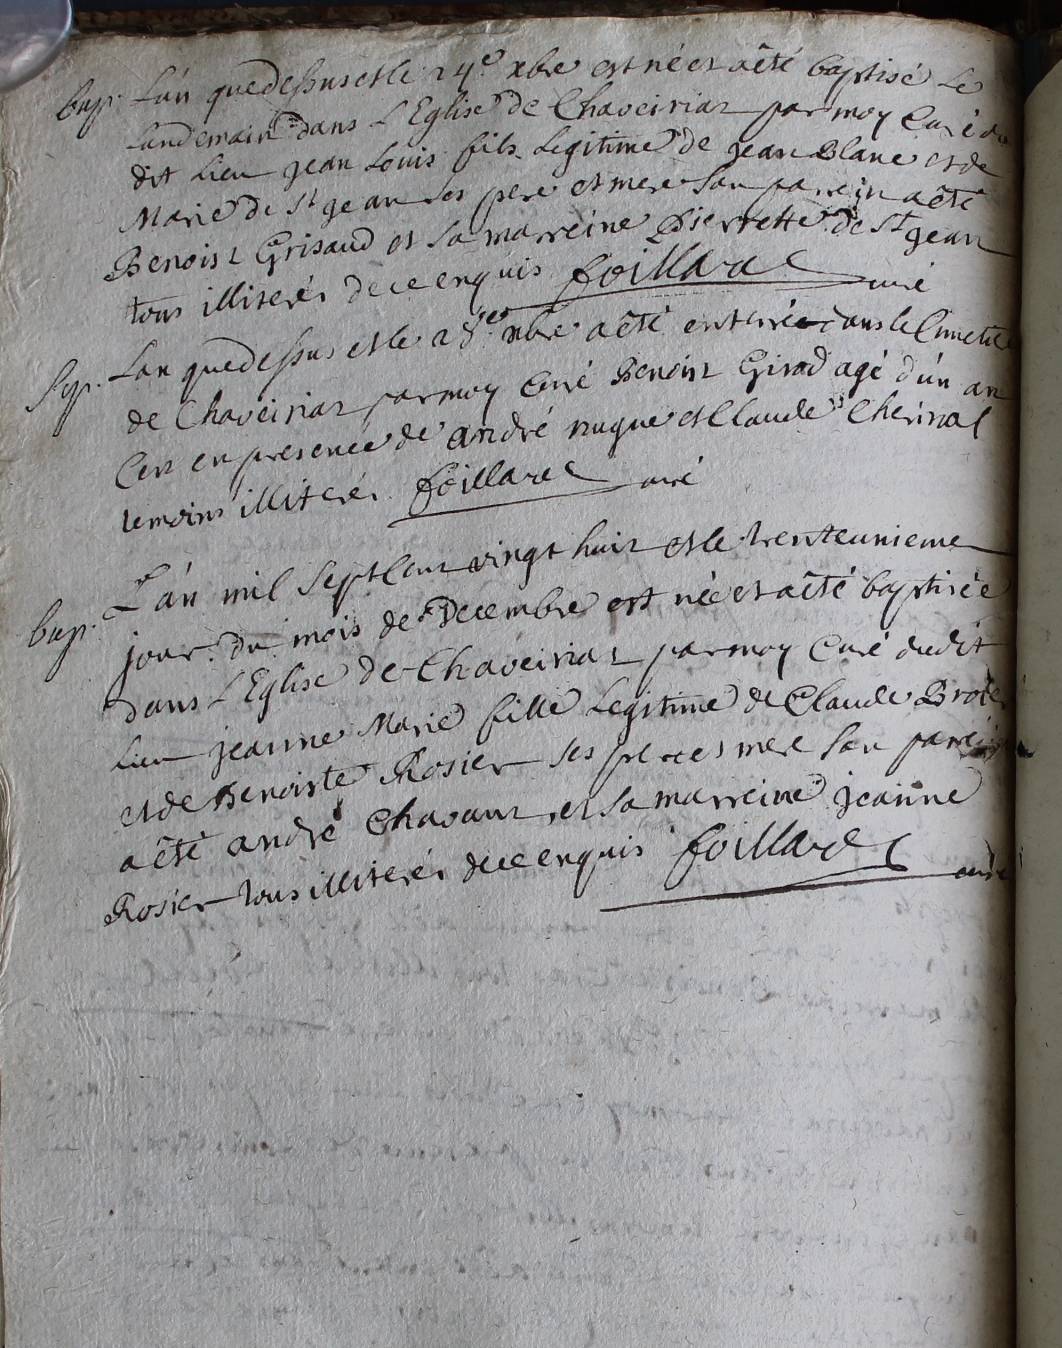 bap. L'án que dessus et le 24e xbre est né et a êté baptisé Le
Landemain dans L'Eglise de Chaveiriat par moy Curé du
dit Lieu jean Louis fils Legitime de jean Blanc et de
Marie de St jean ses pere et mere son parrein a êté
Benoist Grisaud et sa marreine Pierrette de St jean
tous illiterés de ce enquis foillard curé
Sep. L'an que dessus et le 28e xbre a êté enterré dans le Cimetie
de Chaveiriat par moy Curé Benoist Girod agé d'ún an
Cen en presence de andré nugue et Claude Cherinal
temoins illiterés foillard curé
bap. L'án mil sept Cent vingt huit et le trenteunieme
jour du mois de Decembre est née et a êté baptisée
dans L'Eglise de Chaveiriat par moy Curé dudit
Lieu jeanne Marie fille Legitime de Claude Broie
et de Benoiste Rosier ses pere et mere son parrein
a êté andré Chavant et sa marreine jeanne
Rosier tous illiterés de ce enquis foillard curé